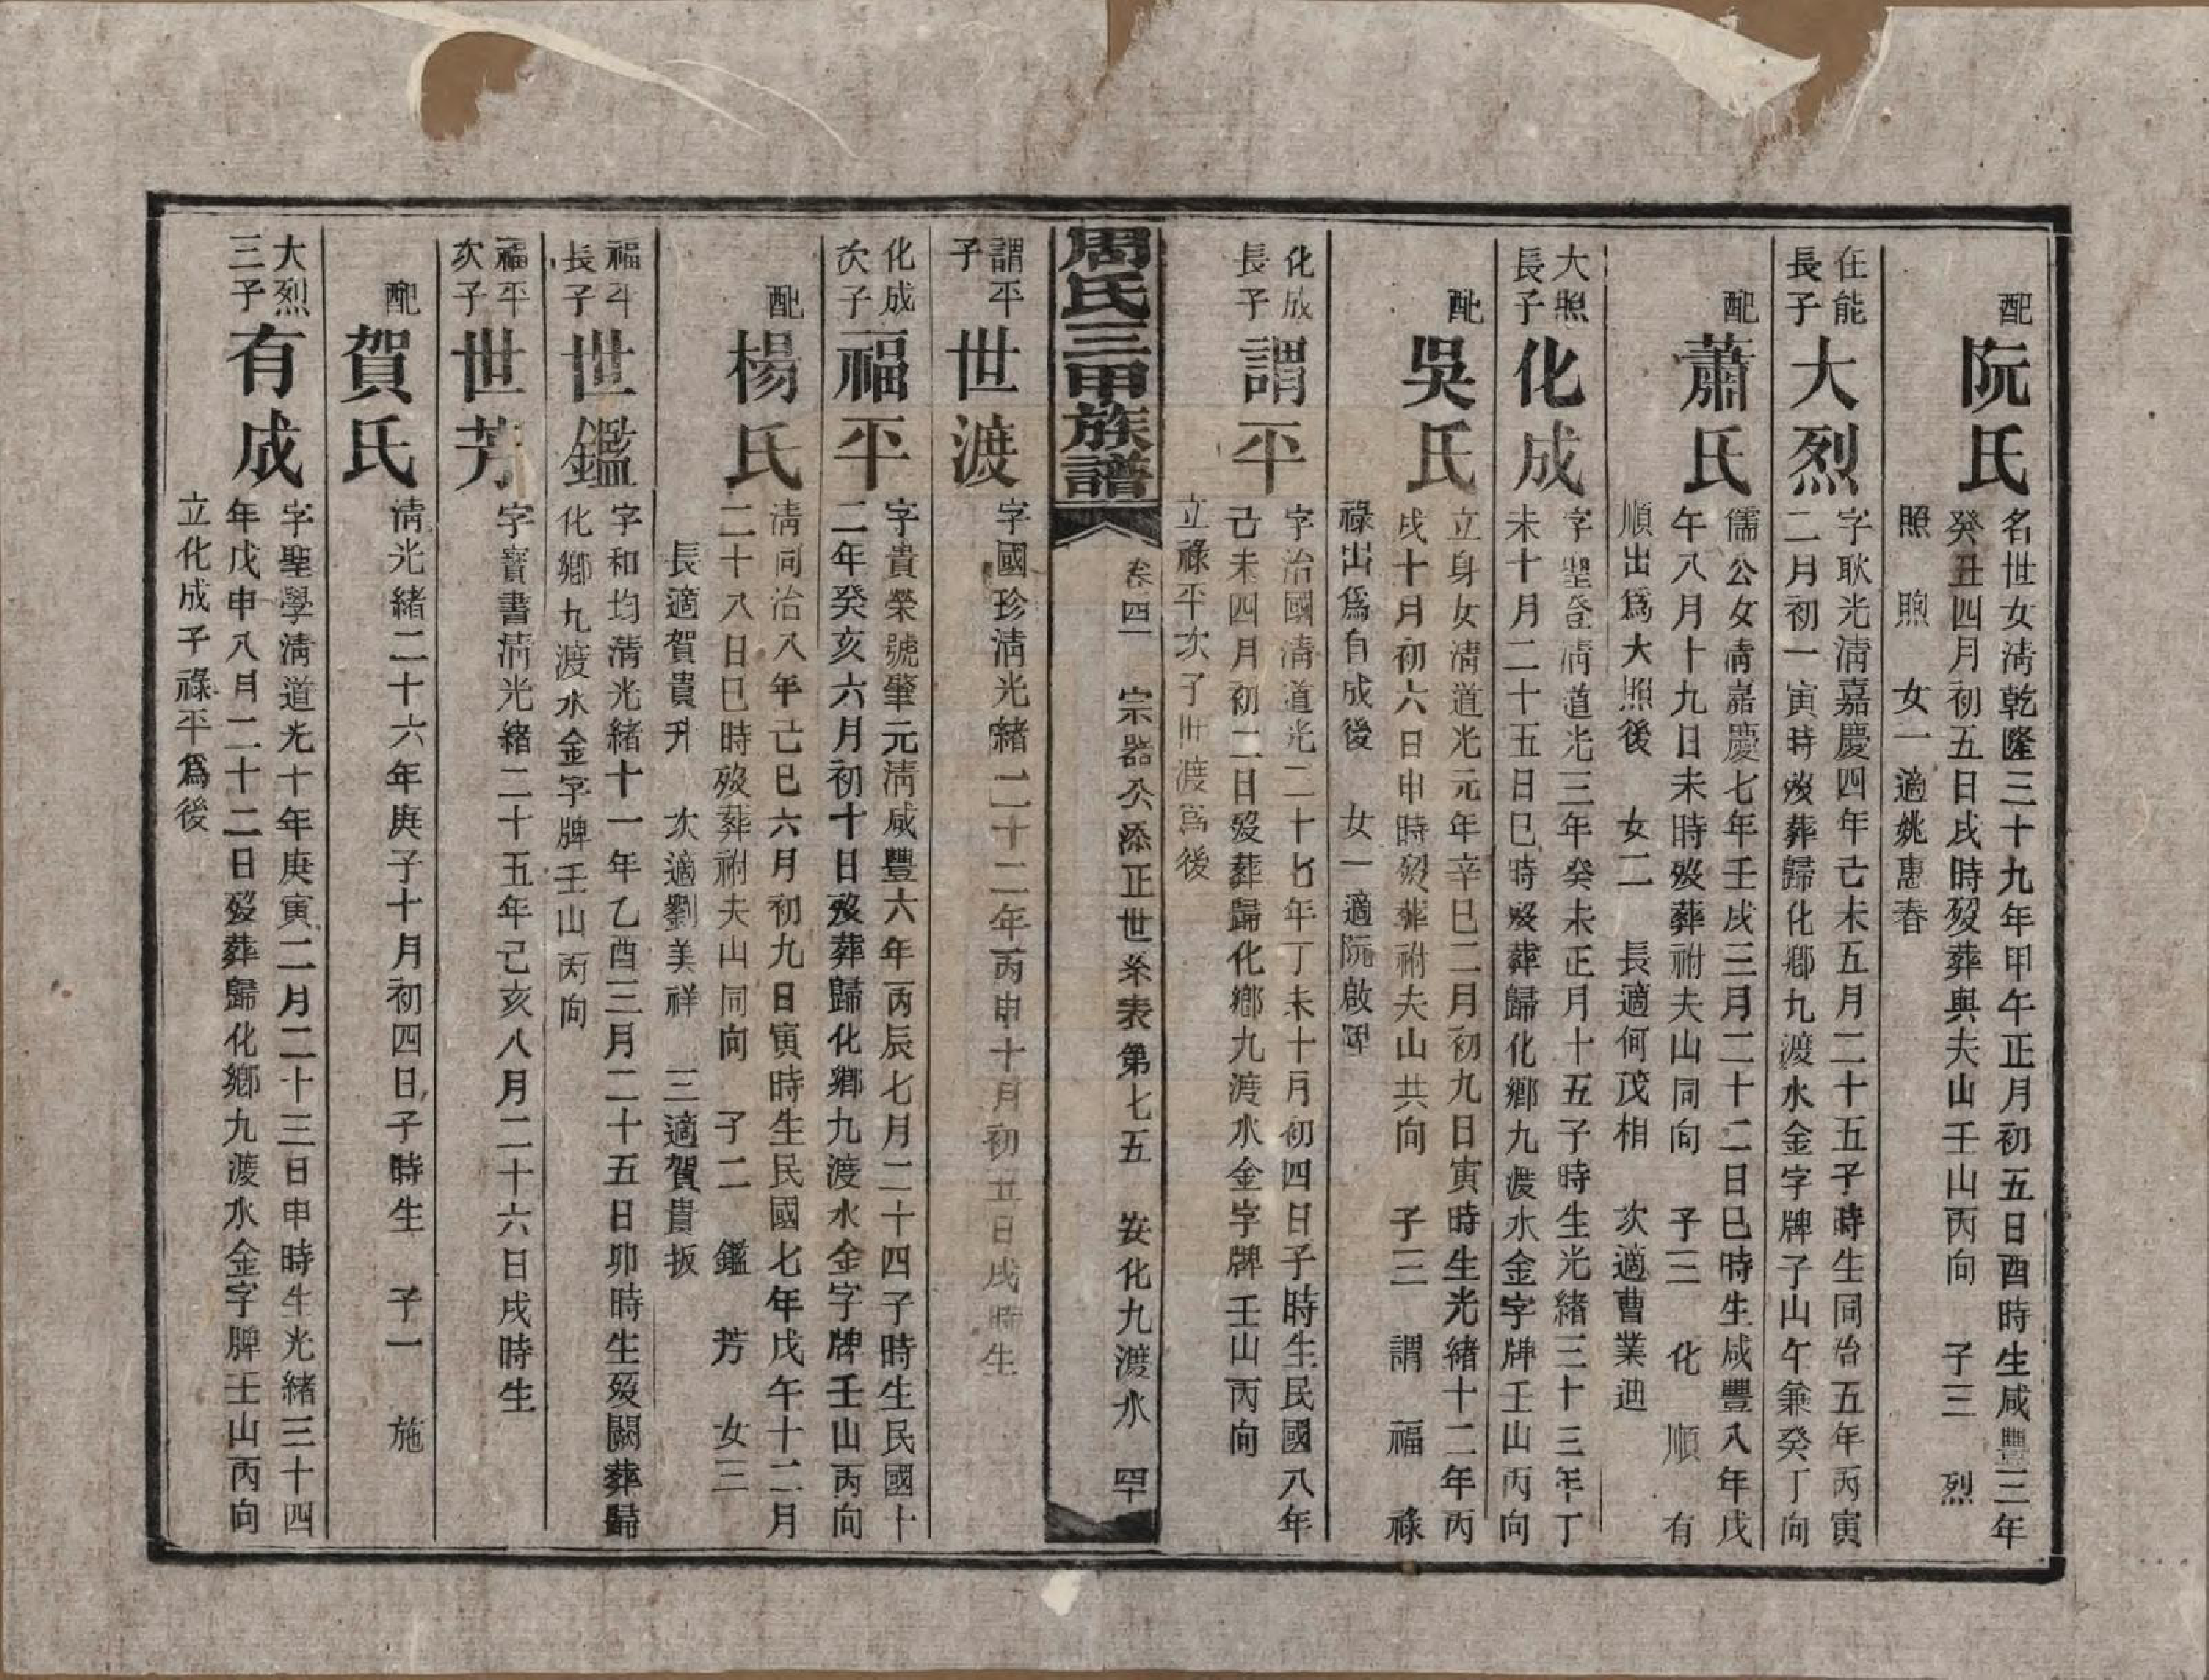 配
阮氏
名世女淸乾隆三十九年甲午正月初五日酉時生咸豐三年
癸丑四月初五日戌時歿葬與夫山壬山丙向　子三　烈
照　煦　女一適姚惠春
在能
長子
大烈
字耿光淸嘉慶四年己未五月二十五子時生同治五年丙寅
二月初一寅時歿葬歸化鄉九渡水金字牌子山午兼癸丁向
配
蕭氏
儒公女淸嘉慶七年壬戌三月二十二日巳時生咸豐八年戊
午八月十九日未時歿葬祔夫山同向　子三　化　順　有
順出爲大照後　女二　長適何茂相　次適曹業迪
大照
長子
化成
字聖  淸道光三年癸未正月十五子時生光緒三十三年丁
未十月二十五日巳時歿葬歸化鄉九渡水金字牌壬山丙向
配
吳氏
立身女淸道光元年辛巳二月初九日寅時生光緒十二年丙
戌十月初六日申時歿葬祔夫山共向　子三　謂　福　祿
祿出爲有成後　女一適阮啟
化成
長子
謂平
字治國淸道光二十七年丁未十月初四日子時生民國八年
己未四月初二日歿葬歸化鄉九渡水金字牌壬山丙向
立祿平次子世渡爲後
周氏三甲族譜
卷四　宗器公添正世系表第七五　安化九渡水　罕
謂平
子
世渡
字國珍淸光緒二十二年丙申十月初五日戌時生
化成
次子
福平
字貴榮號肇元淸咸豐六年丙辰七月二十四子時生民國十
二年癸亥六月初十日歿葬歸化鄉九渡水金字牌壬山丙向
配
楊氏
淸同治八年己巳六月初九日寅時生民國七年戊午十二月
二十八日巳時歿葬祔夫山同向　子二　鑑　芳　女三
長適賀貴升　次適劉美祥　三適賀貴扳
福平
長子
世鑑
字和均淸光緒十一年乙酉三月二十五日卯時生歿闕葬歸
化鄉九渡水金字牌壬山丙向
福平
次子
世芳
字寶書淸光緒二十五年己亥八月二十六日戌時生
配
賀氏
淸光緒二十六年庚子十月初四日子時生　子一　施
大烈
三子
有成
字聖學淸道光十年庚寅二月二十三日申時生光緒三十四
年戊申八月二十二日歿葬歸化鄉九渡水金字牌壬山丙向
立化成子祿平爲後